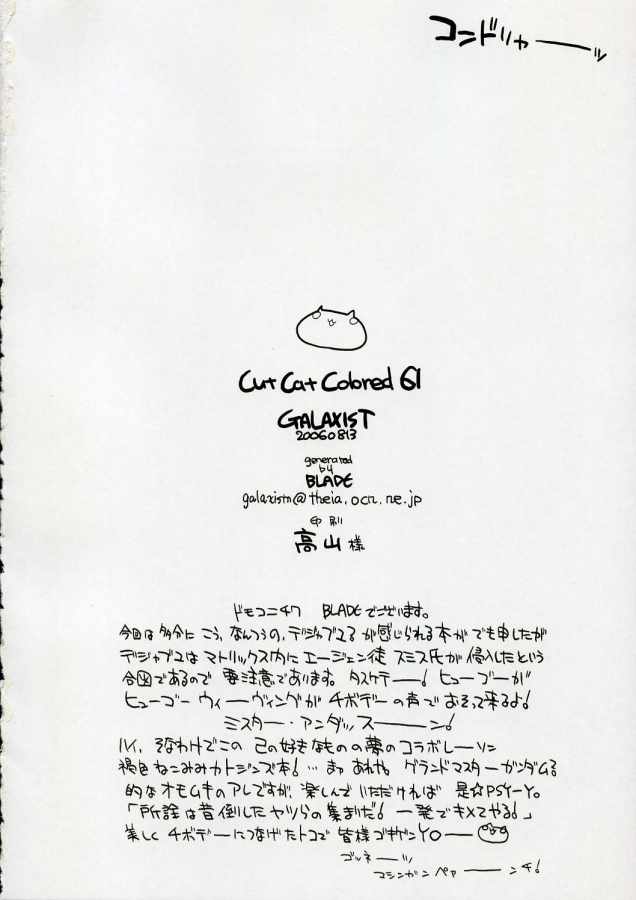 コンドリャーーッ
Cut Cat Colored 61
GALAXIST
20060813
generated
by
BLADE
galaxistn@theia.ocn.ne.jp
印刷
高山様
ドモコニチワ BLADEでございます。
今回は多分に こう、なんつうの、デジャブユる が感じられる本が でも申したが
デジャブユは マトリックス内に エージェン徒 スミス氏が 侵入したという
合図であるので 要注意であります。タスケテー! ヒューゴーが
ヒューゴー ウィーヴィングが チボデーの声で おそって来るよ!
ミスター・アンダッスーーン!
そなわけで この 己の好きなものの夢の コラボレーソン
褐色ねこみみカトジンズ本! … まァ あれや。グランドマスターガンダムる
的な オモムキの アレですが、楽しんで いただければ 是☆PSY-Yo。
「所詮は昔倒したヤツらの集まりだ! 一発でキメてやる!」
美しく チボデーにつなげたトコで 皆様ゴキゲンYOー
ゴルネーーッ
マシンガン ペァーーンチ!